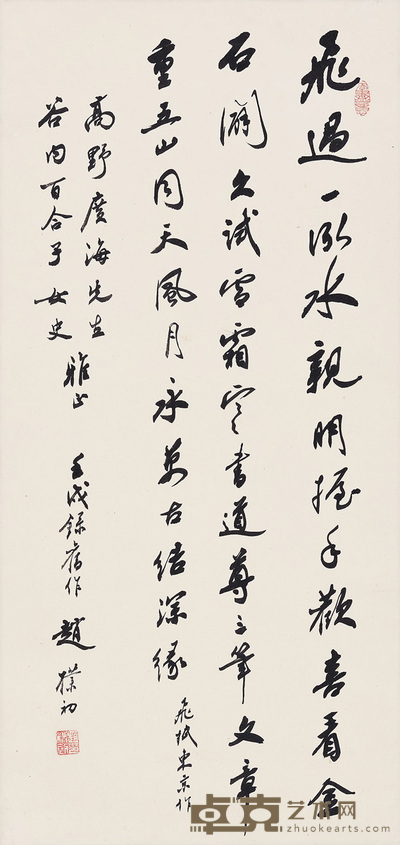 飛過一泓水親朋握手歡喜看金
石久試雪霜寒書道尊三筆文章
重五山同天風月永萬古結深緣
飛抵東京作
高野廣海先生
谷内百合子女史
雅正
壬戌錄舊作
趙樸初
卓克艺术网
zhuokearts.com